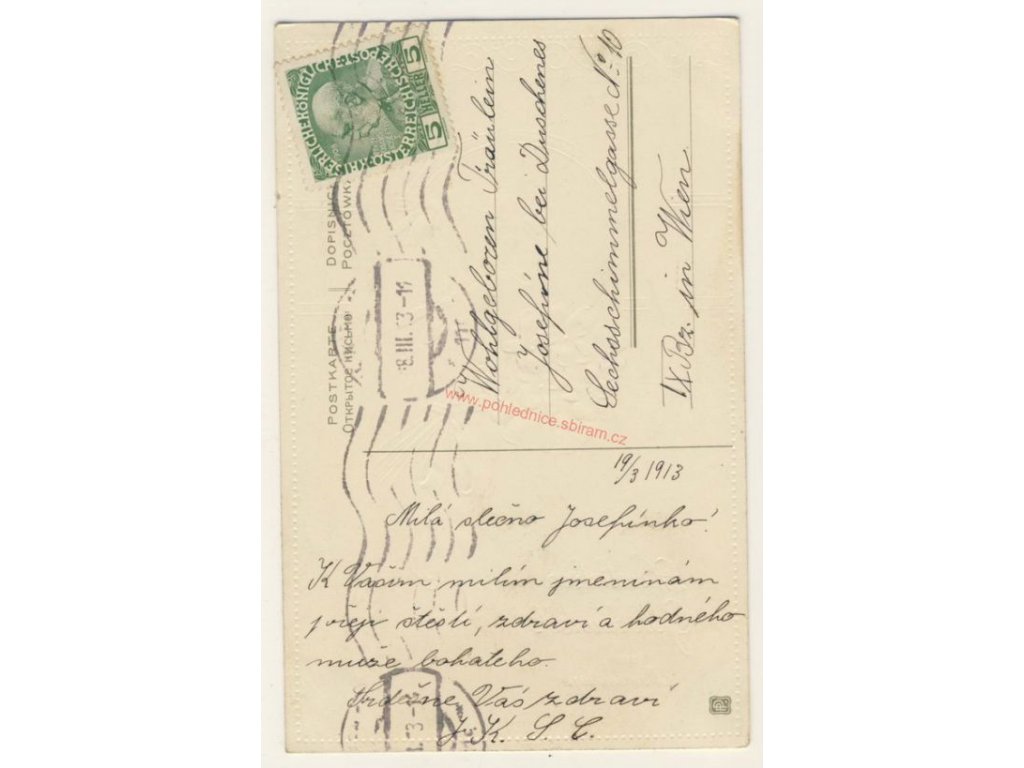 KAISERLICHE KÖNIGLICHE
ÖSTERREICHISCHE POST
5 HELLER 5
POSTKARTE
DOPISNICE
ОТКРЫТОЕ ПИСЬМО
POCZTÓWKA
8.III.13-11
Wohlgeboren Fräulein
Josefine bei Duschenes
Sechsschimmelgasse No 10
IX Bz. in Wien
www.pohlednice.sbiram.cz
19/3 1913
Milá slečno Josefínko!
K Vašim milím jmeninám
přeji štěstí, zdraví a hodného
muže bohatého.
Srdečne Vás zdraví
J. K. S. C.